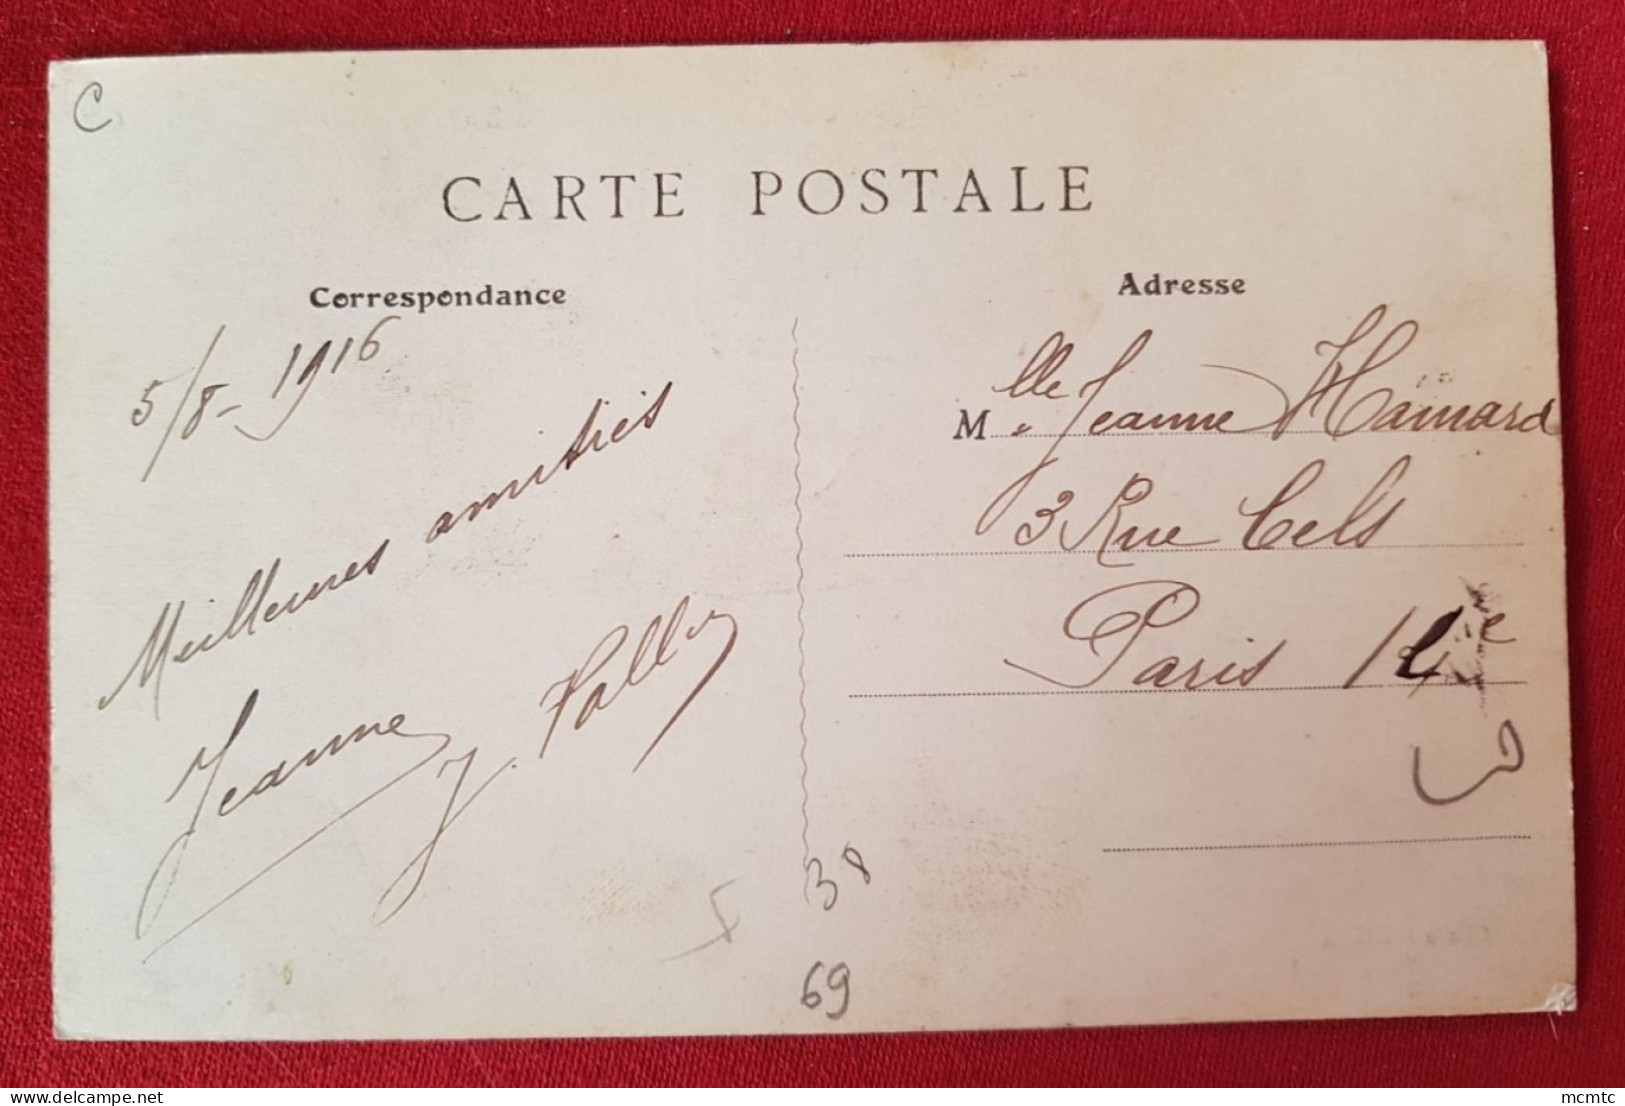 C
CARTE POSTALE
Correspondance
5/8-1916
Meilleures amitiés
Jeanne
J.
Adresse
Mlle Jeanne Hamard
3 Rue Cels
Paris 14e
38
69
delcampe.net
mcmtc